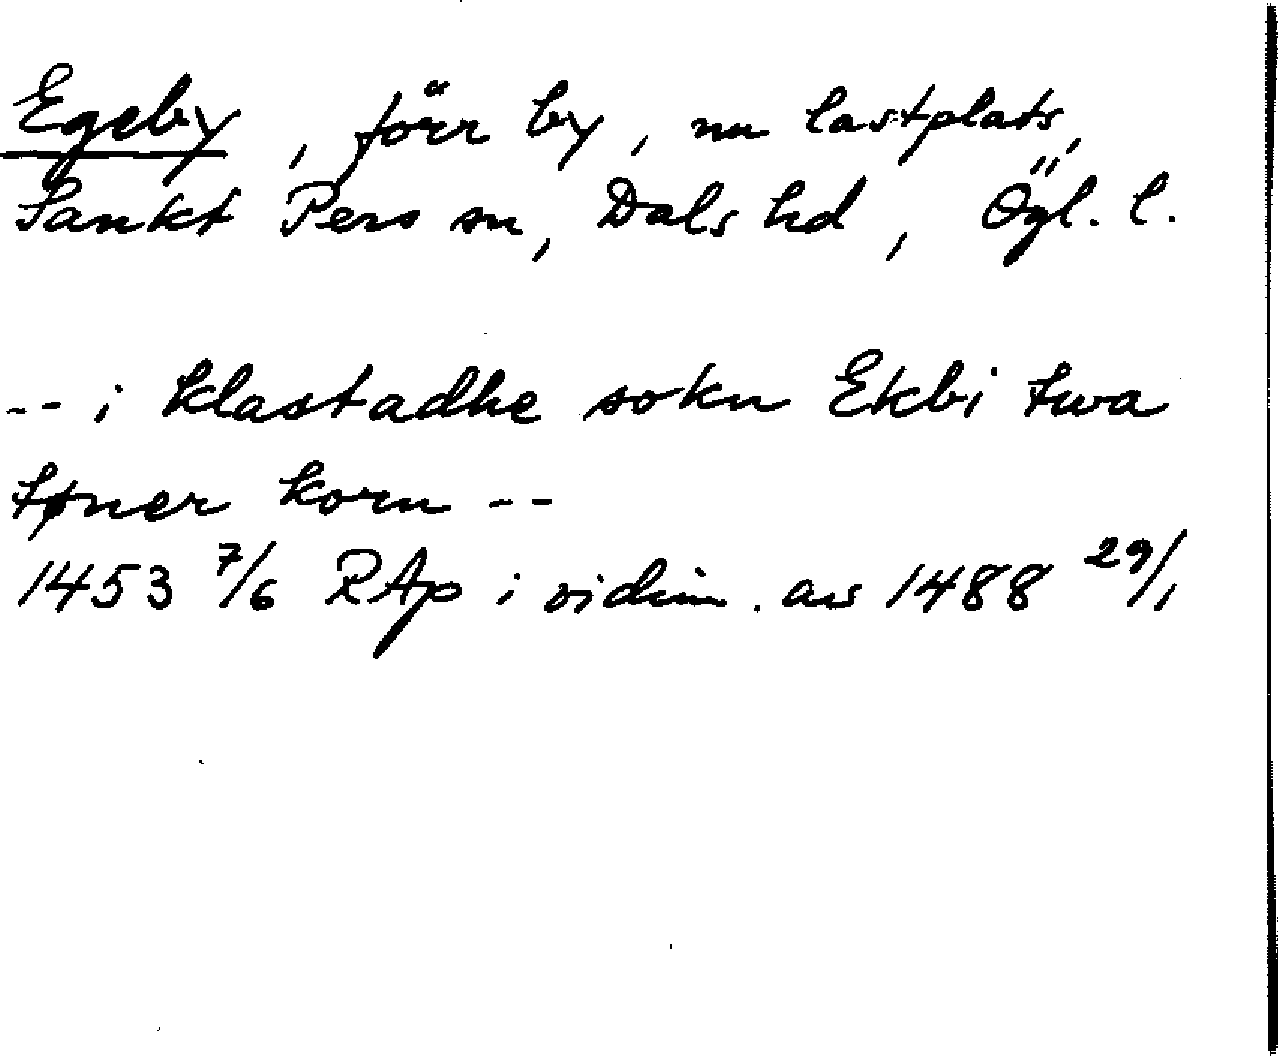 Egeby, förr by, nu lastplats,
Sankt Pers sn, Dals hd, Ögl. l.
-- i klastadhe sokn Ekbi twa
tøner korn --
1453 7/6 RAp i vidim. av 1488 29/1